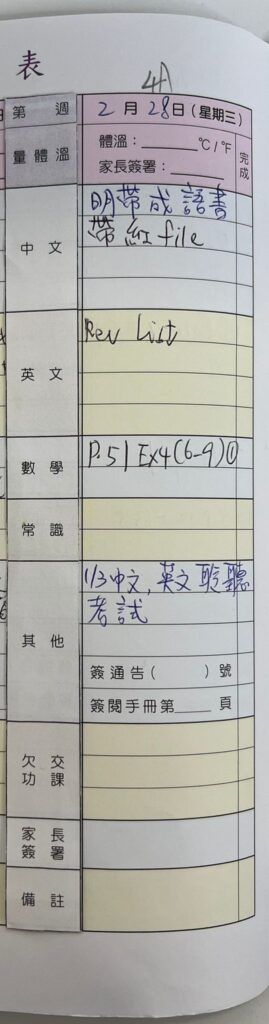 表
第 週
2月28日(星期三)
量體溫
體溫：______℃/℉
家長簽署：______
完成
中文
明帶成語書
帶紅file
英文
Rev List
數學
P.51 Ex4(6-9)①
常識
其他
1/3中文,英文聆聽
考試
簽通告( )號
簽閱手冊第____頁
欠交
功課
家長
簽署
備註